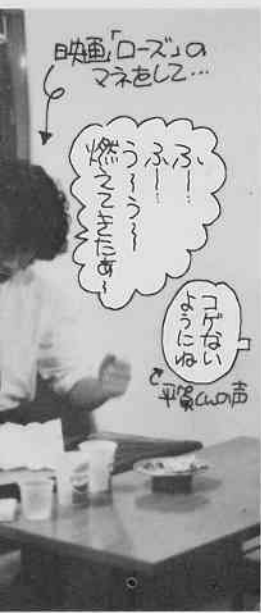 映画「ローズ」の
マネをして…
ふ〜…
ふ〜…
う〜う〜〜
燃えてきたあ〜
コゲない
ようにね
平賀くんの声